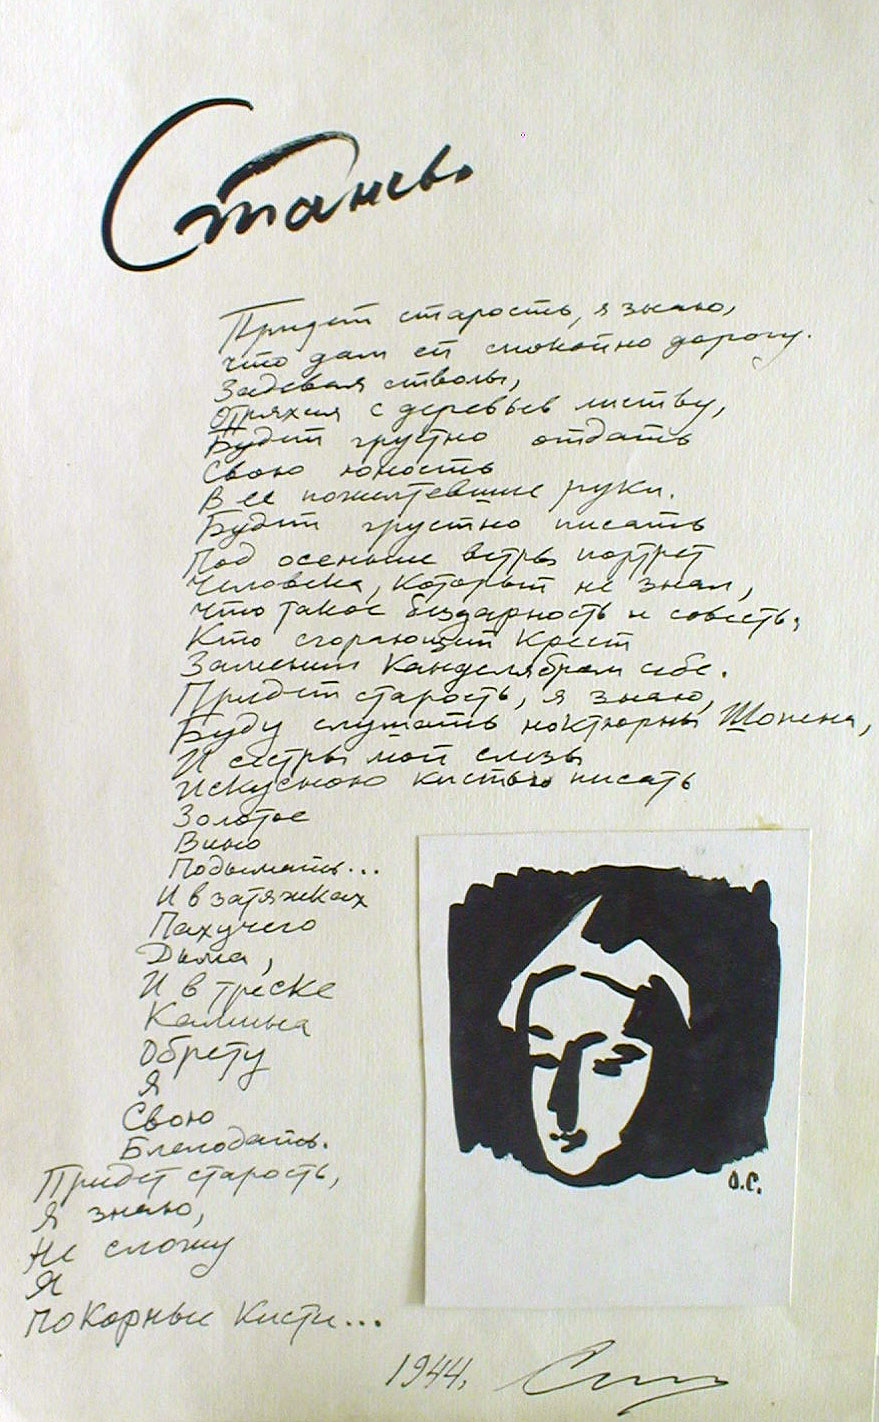 Придет старость, я знаю,
что дам ей спокойно дорогу.
Задевая стволы,
Отряхая с деревьев листву,
Будет грустно отдать
Свою юность
В ее пожелтевшие руки.
Будет грустно писать
Под осенние ветры портрет
Человека, который не знал,
Что такое бездарность и совесть,
Кто сгорающий крест
Заменил канделябрам себе.
Придет старость, я знаю,
Буду слушать ноктюрны Шопена,
И сестры мой слезы
Искусною кистью писать
Золотое
Вино
Подымать...
И в затяжках
Пахучего
Дыма,
И в треске
Камина
Обрету
Я
Свою
Благодать.
Придет старость,
Я знаю,
Не сложу
Я
Покорные кисти...
О.С.
1944.